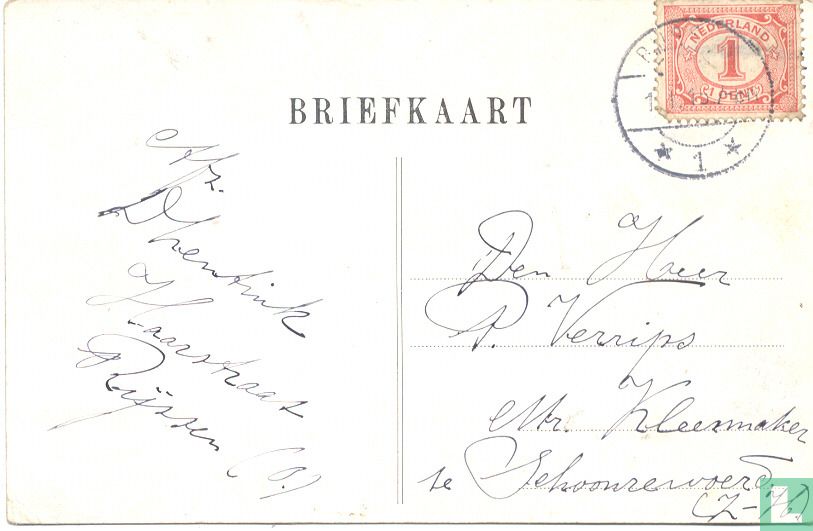 BRIEFKAART
NEDERLAND
1
1 CENT
1
Afz.
Haarstraat
Rijssen (O.)
Den Heer
P. Verrips
Mr. Kleermaker
te Schoonrewoerd
(Z-H)